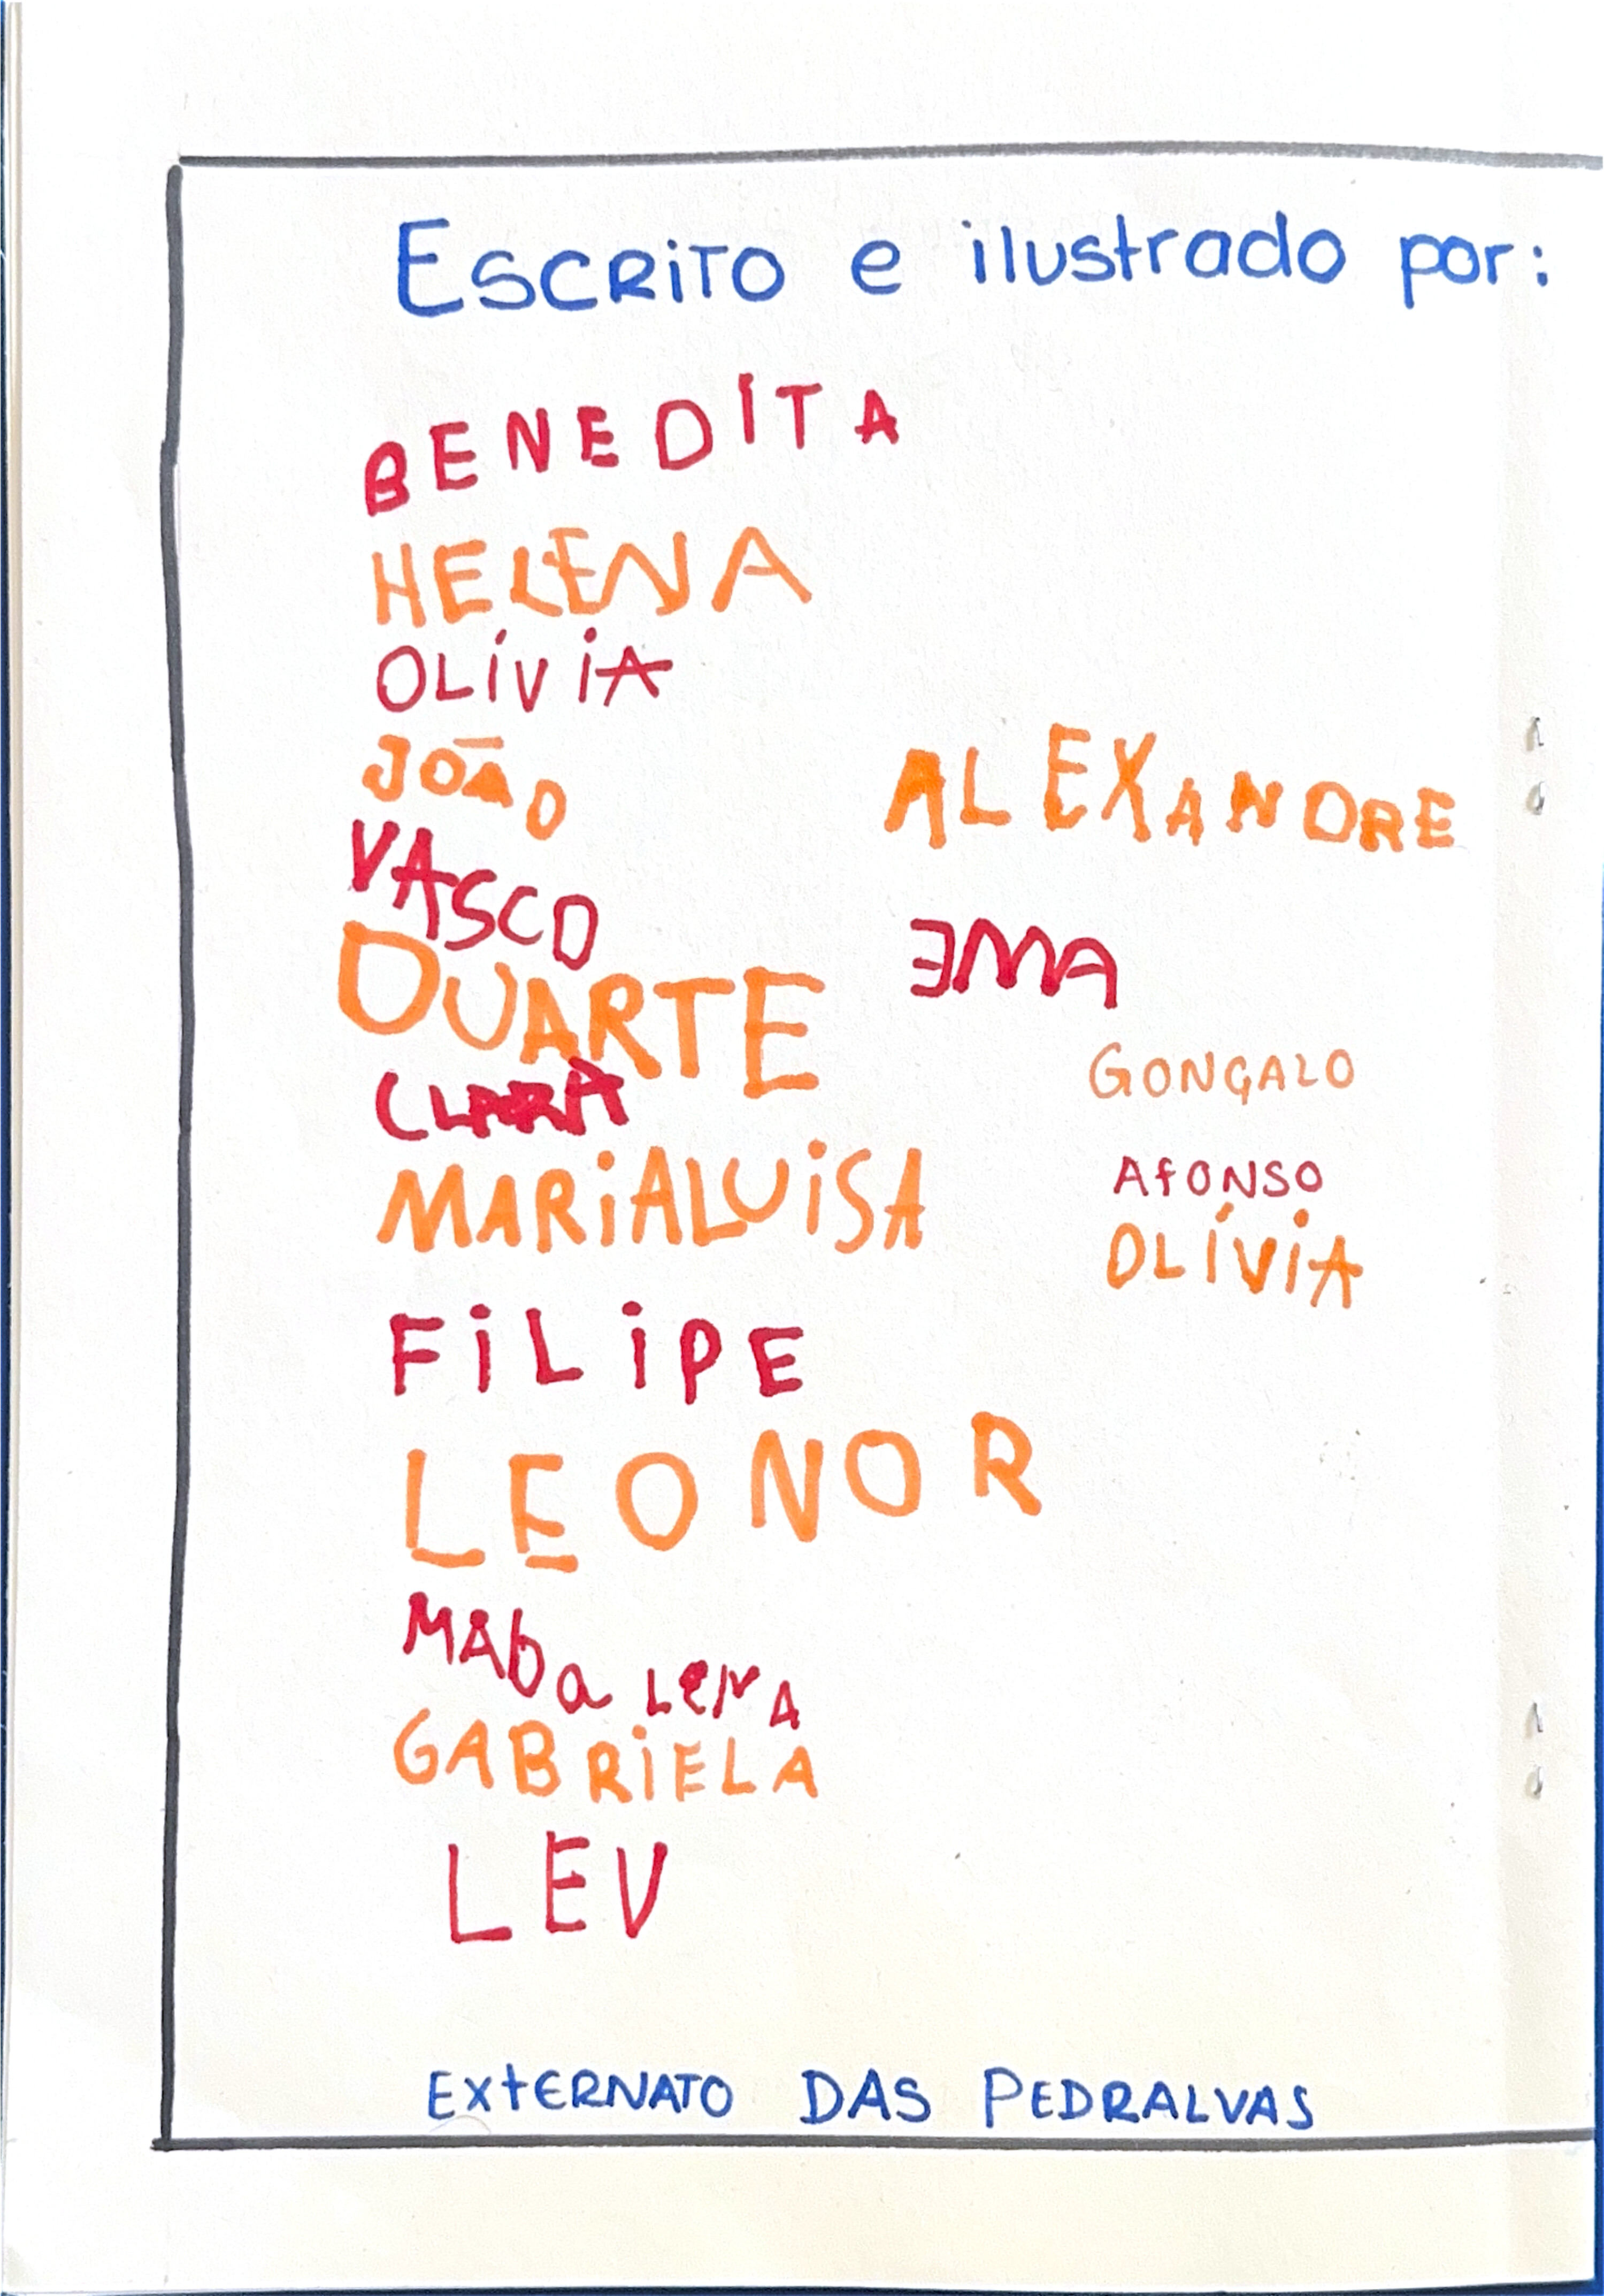 Escrito e ilustrado por:
BENEDITA
HELENA
OLÍVIA
JOÃO
VASCO
DUARTE
CLARA
MARIALUISA
FILIPE
LEONOR
MAbaLeNA
GABRIELA
LEV
ALEXANDRE
EMA
GONÇALO
AfONSO
OLÍVIA
EXtERNATO DAS PEDRALVAS